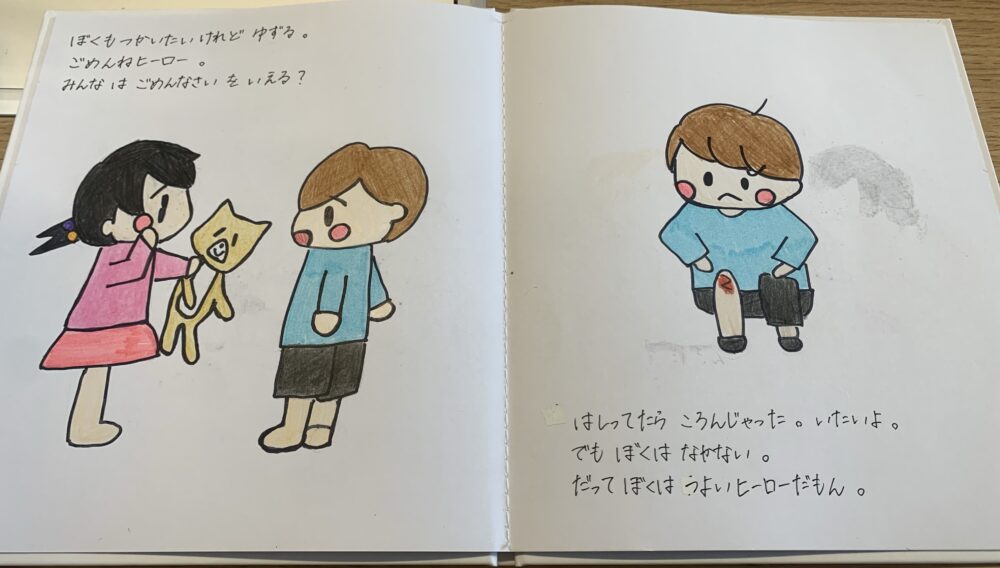 ぼくもつかいたいけれど ゆずる。
ごめんねヒーロー。
みんな は ごめんなさい を いえる？
はしってたら ころんじゃった。いたいよ。
でも ぼくは なかない。
だって ぼくは うよいヒーローだもん。